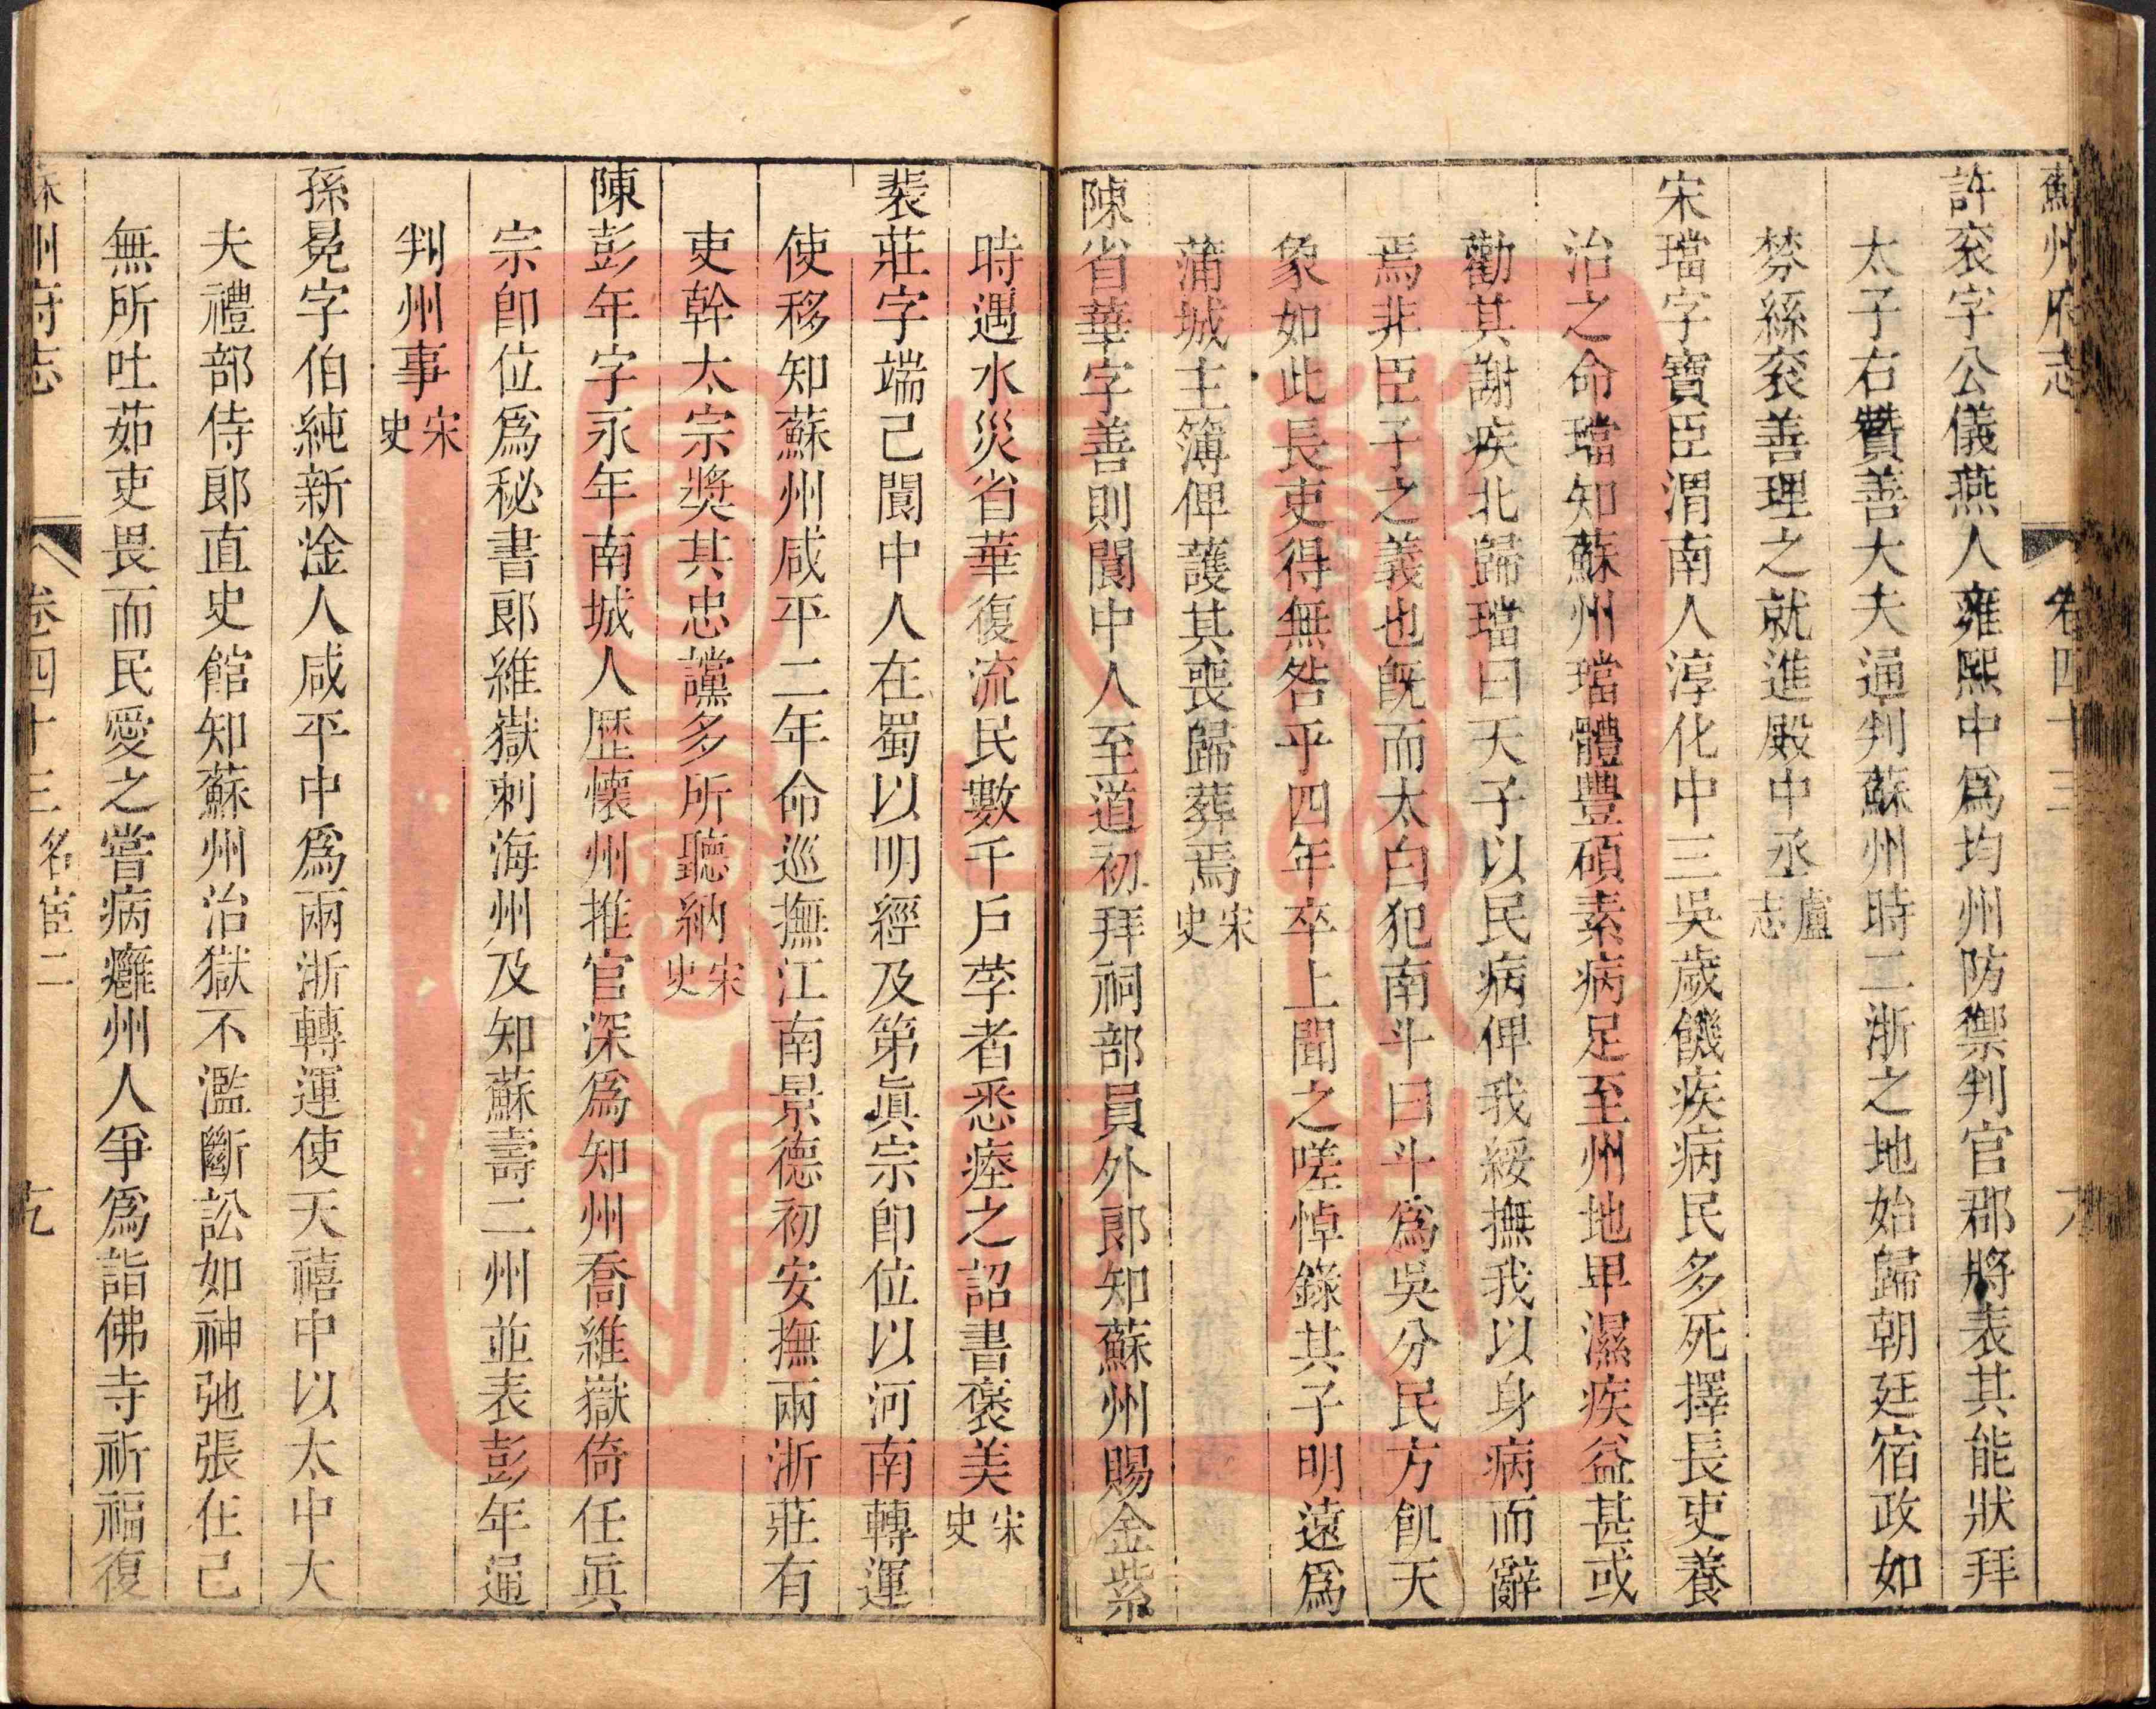 蘇州府志 卷四十三
許袞字公儀燕人雍熙中爲均州防禦判官郡將表其能狀拜
太子右贊善大夫通判蘇州時二浙之地始歸朝廷宿政如
棼絲袞善理之就進殿中丞盧志
宋璫字寶臣渭南人淳化中三吳歲饑疾病民多死擇長吏養
治之命璫知蘇州璫體豐碩素病足至州地卑濕疾益甚或
勸其謝疾北歸璫曰天子以民病俾我綏撫我以身病而辭
焉非臣子之義也旣而太白犯南斗曰斗爲吳分民方飢天
象如此長吏得無咎乎四年卒上聞之嗟悼錄其子明遠爲
蒲城主簿俾護其喪歸葬焉宋史
陳省華字善則閬中人至道初拜祠部員外郎知蘇州賜金紫
時遇水災省華復流民數千戶莩者悉瘞之詔書褒美宋史
裴莊字端己閬中人在蜀以明經及第眞宗卽位以河南轉運
使移知蘇州咸平二年命巡撫江南景德初安撫兩浙莊有
吏幹太宗獎其忠讜多所聽納宋史
陳彭年字永年南城人歷懷州推官深爲知州喬維嶽倚任眞
宗卽位爲秘書郎維嶽刺海州及知蘇壽二州並表彭年通
判州事宋史
孫冕字伯純新淦人咸平中爲兩浙轉運使天禧中以太中大
夫禮部侍郎直史館知蘇州治獄不濫斷訟如神弛張在己
無所吐茹吏畏而民愛之嘗病癰州人爭爲詣佛寺祈福復
州府志 卷四十三 名宦二 九